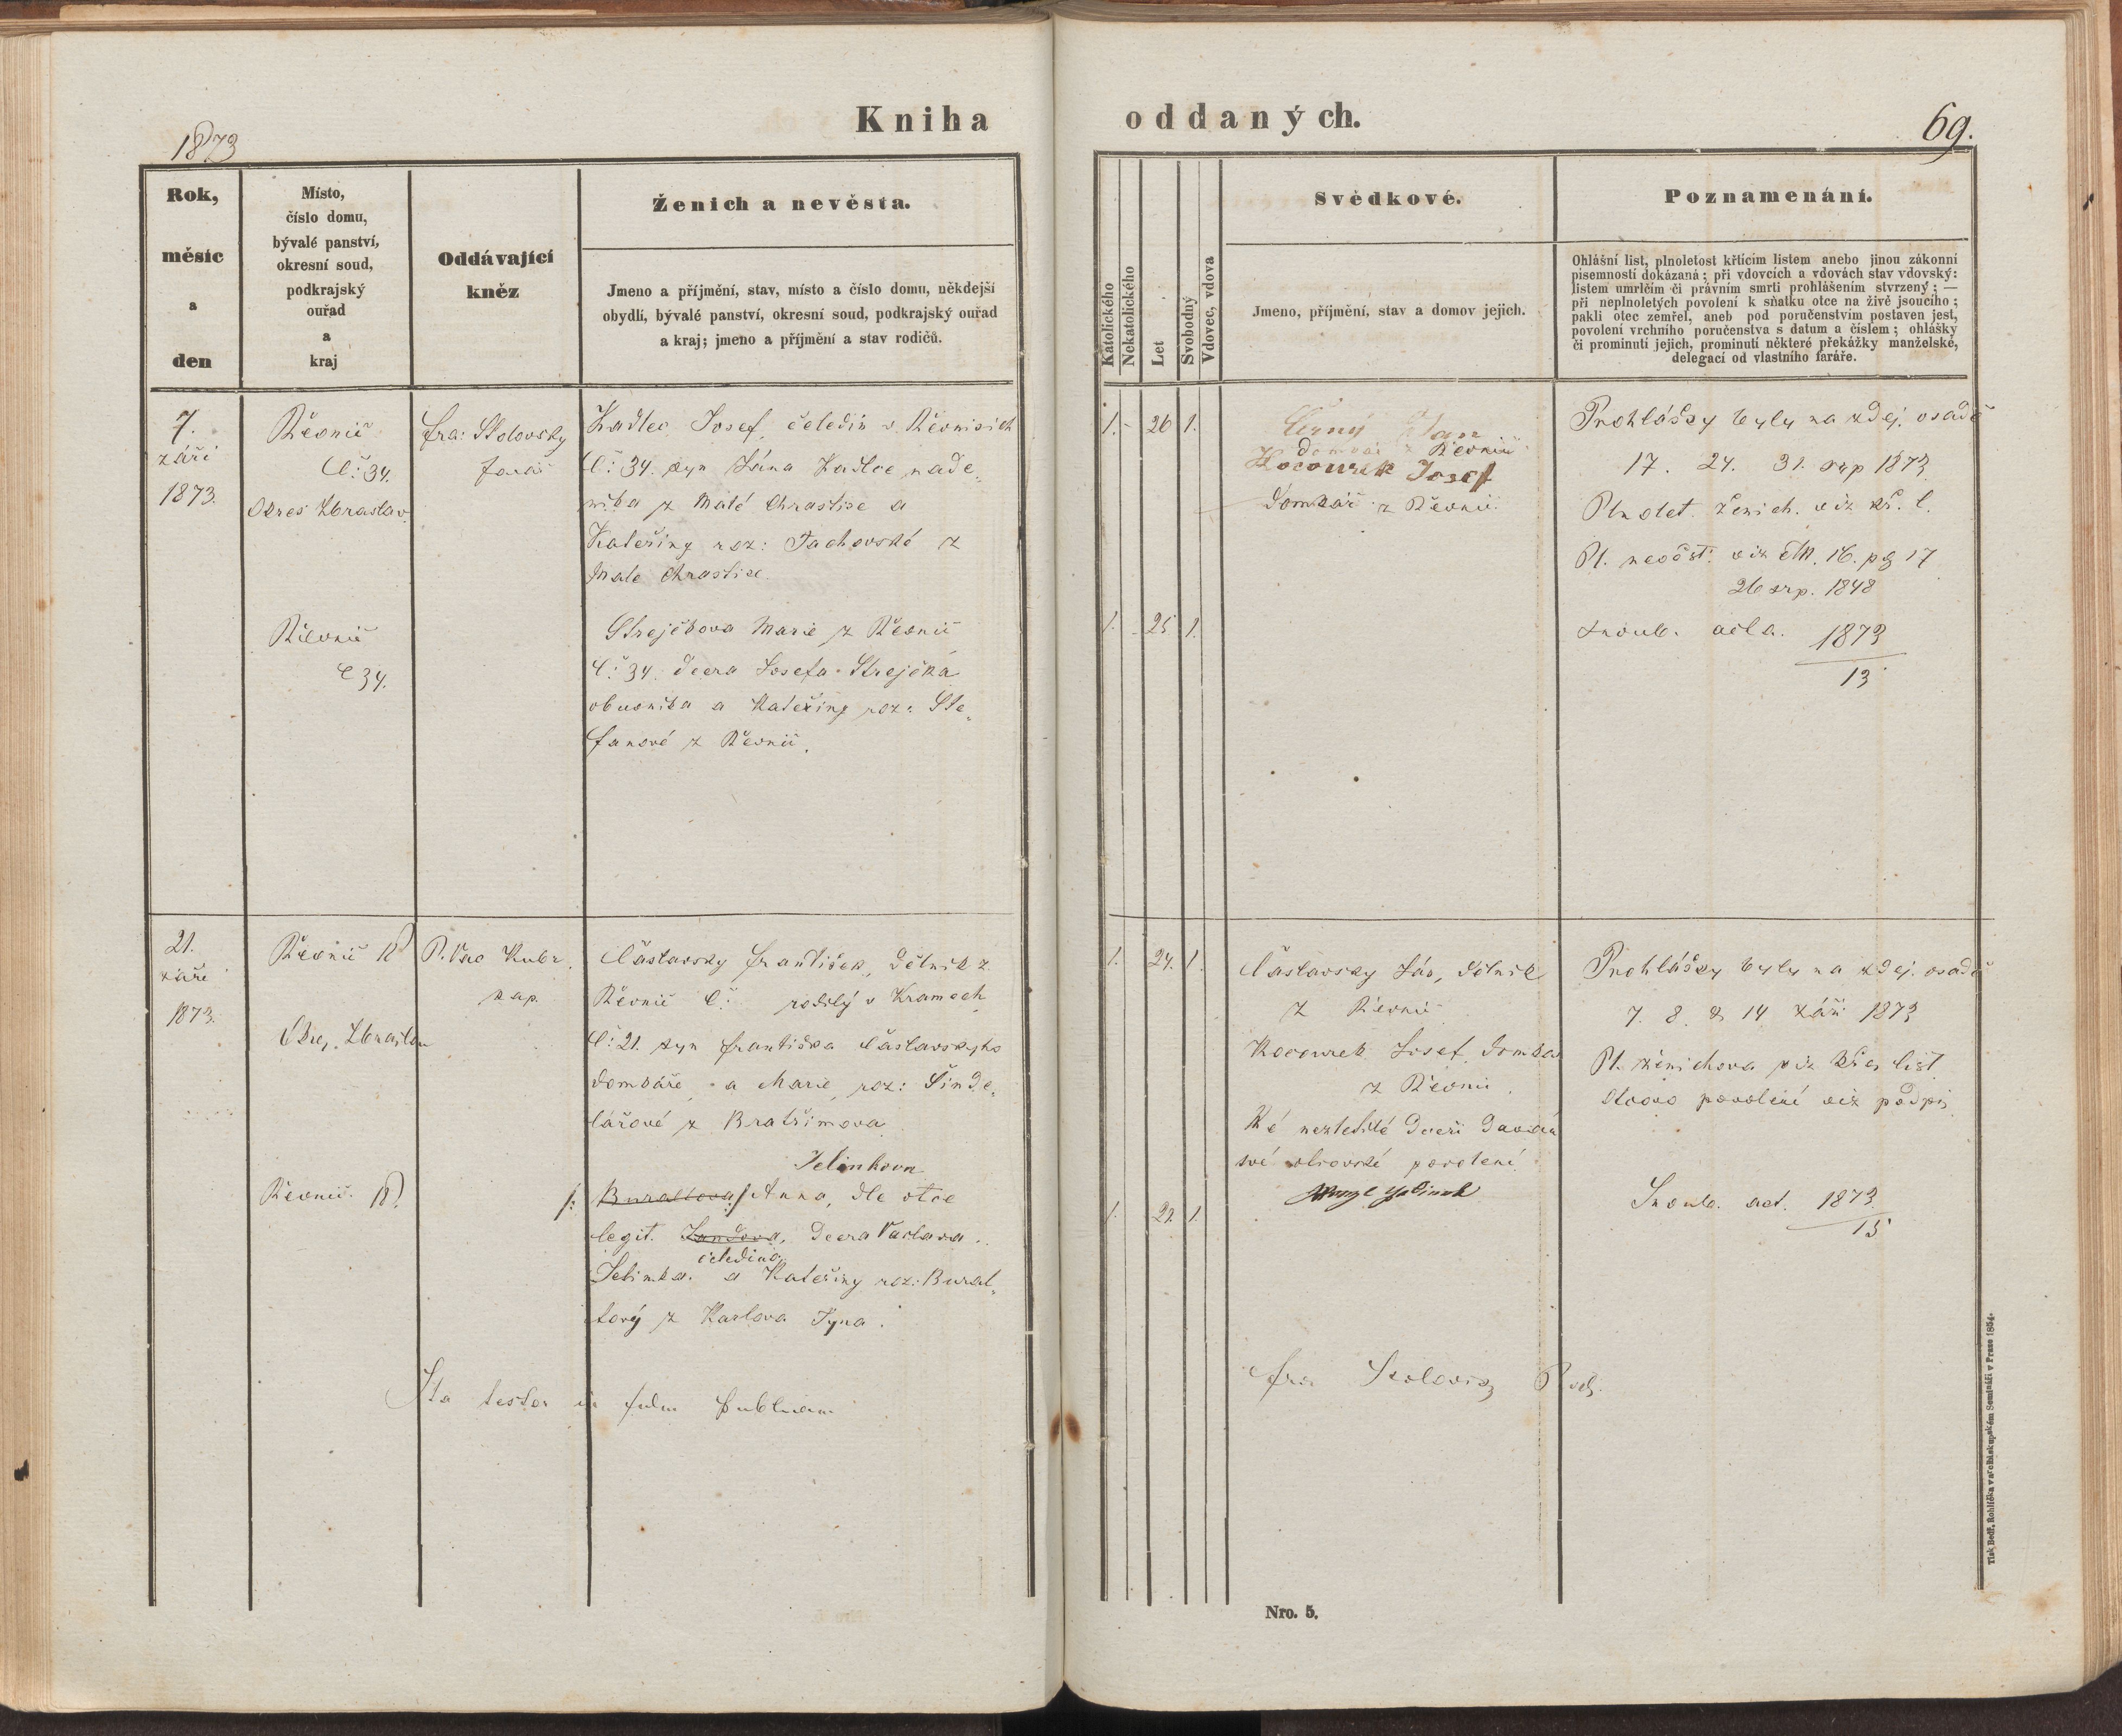 1873
Kniha
Rok,
měsíc
a
den
Místo,
číslo domu,
bývalé panství,
okresní soud,
podkrajský
ouřad
a
kraj
Oddávající
kněz
Ženich a nevěsta.
Jmeno a příjmění, stav, místo a číslo domu, někdejší
obydlí, bývalé panství, okresní soud, podkrajský ouřad
a kraj; jmeno a příjmění a stav rodičů.
7.
září
1873.
Řevnic
Č: 34.
Okres Zbraslav
fra: Stolovsky
farář
Kadlec Josef, čeledín v Řevnicích
Č: 34. syn Jána Kadlce nade„
níka z Malé Chrastice a
Kateřiny roz: Tachovské z
Malé Chrastice.
Řevnic
Č 34.
Strejčkova Marie z Řevnic
Č: 34. dcera Josefa Strejčka
obuvníka a Kateřiny roz: Ste„
fanové z Řevnic.
21.
září
1873.
Řevnic 18
Okr. Zbraslav
P. Vác Kubr
kap.
Čáslavsky František, dělník z
Řevnic Č: rodilý v Kramech
Č: 21. syn Františka Čáslavskyho
domkáře a Marie roz: Šinde„
lářové z Bratřimova
Jelinkova
Řevnic. 18
Burattova Anna, dle otce
legit. dcera Vaclava
čeledína
Jelínka a Kateřiny roz: Burat„
tový z Karlova Týna.
Ita testor in fidem publicam
oddaných.
69.
Katolického
Nekatolického
Let
Svobodný
Vdovec, vdova
Svědkové.
Jmeno, příjmění, stav a domov jejich.
Poznamenání.
Ohlášní list, plnoletost křtícím listem anebo jinou zákonní
písemností dokázaná; při vdovcích a vdovách stav vdovský:
listem umrlčím či právním smrti prohlášením stvrzený; —
při neplnoletých povolení k sňatku otce na živě jsoucího;
pakli otec zemřel, aneb pod poručenstvím postaven jest,
povolení vrchního poručenstva s datum a číslem; ohlášky
či prominutí jejich, prominutí některé překážky manželské,
delegací od vlastního faráře.
1. 26 1.
Černý Jan
domkář z Řevnic
Kocourek Josef
domkář z Řevnic
Prohlášky byly na zdej. osadě
17. 24. 31. srp 1873
Plnolet. ženich. viz kř. l.
Pl. nevěst. viz M. 16. pg 17
26 srp. 1848
snoub. acta. 1873
13
1. 25 1.
1. 24. 1.
Čáslavsky Ján, dělník
z Řevnic
Kocourek Josef domkář
z Řevnic
Ké nezletilé dceři dávám
své otcovské povolení
Jelinek
Prohlášky byly na zdej. osadě
7. 8. & 14 září 1873
Pl. ženichova viz křes list
Otcovo povolení viz podpis
Snoub. act. 1873
15
1. 21. 1.
fra Stolovsky
Nro. 5.
Tisk Bedř. Rohlíčka v arcibiskupském Semináři v Praze 1854.